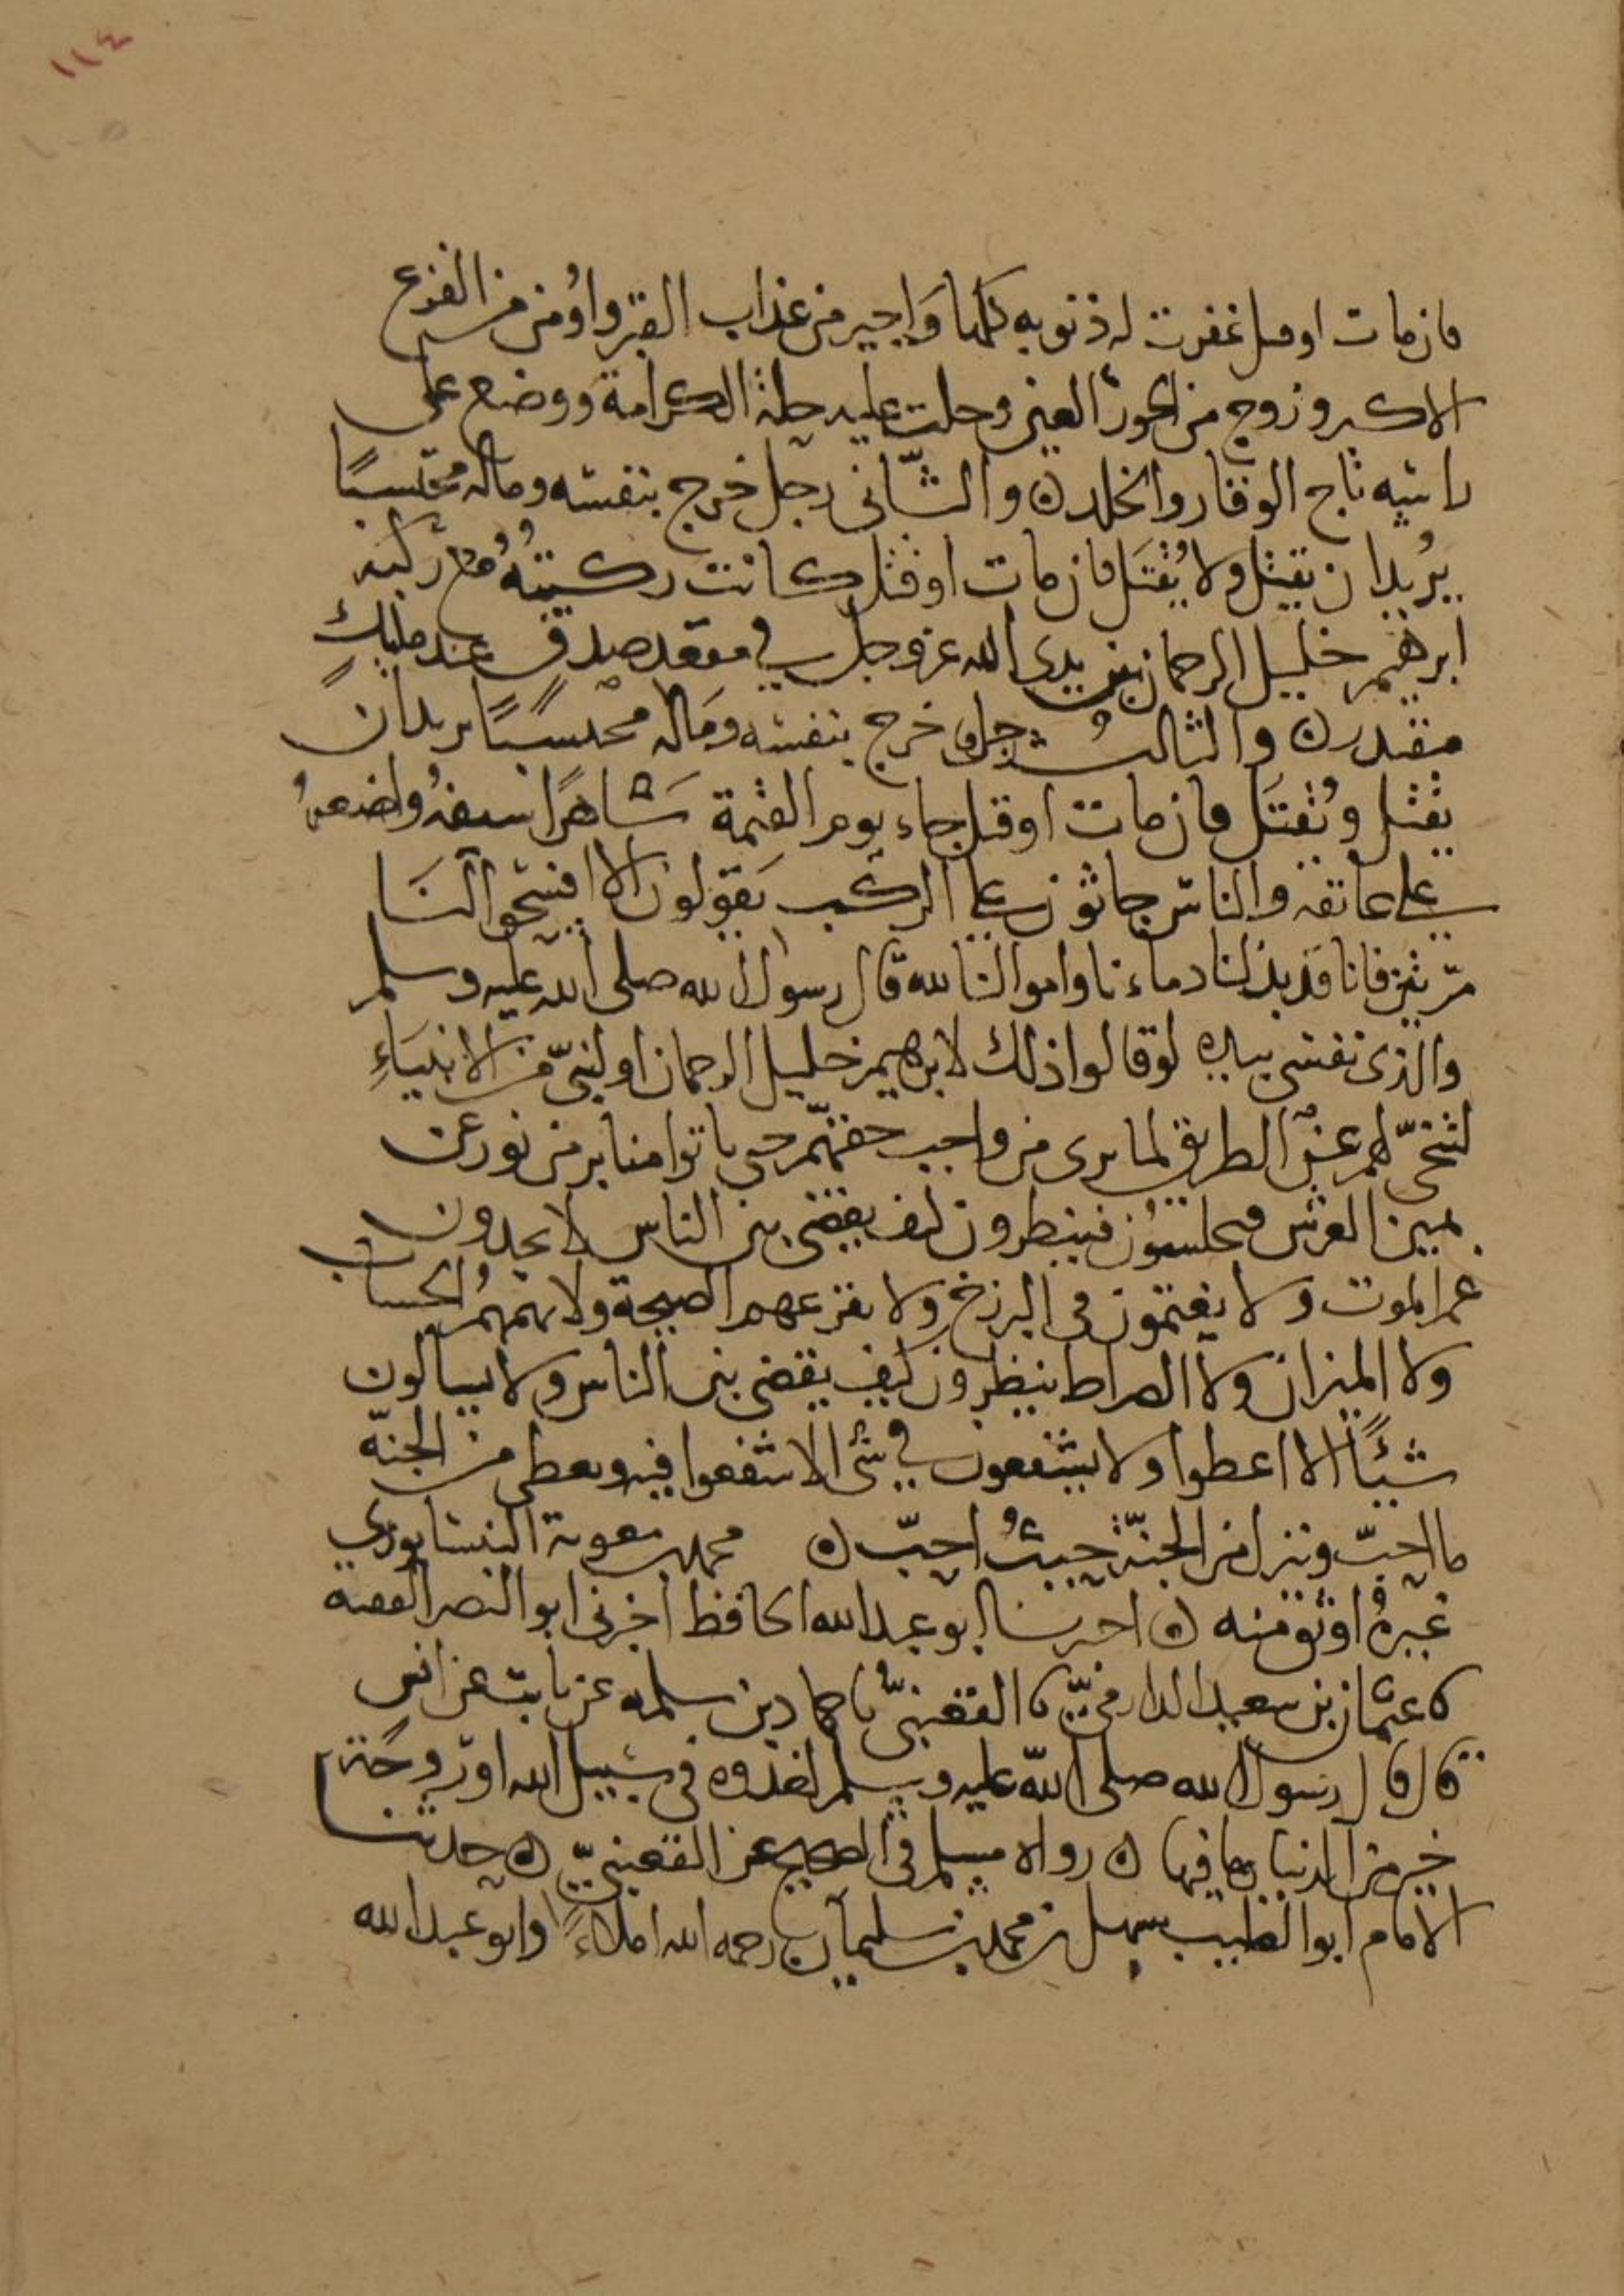 ١١٤
١٠٥
فان مات او قتل غفرت له ذنوبه كلها وَاجير من عذاب القبر واُومن من الفزع
الاكبر وزوج من الحور العين وحلت عليه حلة الكرامة ووضع على
راسه تاج الوقار والخلد ن والثّاني رجل خرج بنفسه وماله محتسبًا
يُريد ان يقتل ولا يُقتَل فان مات او قتل كانت ركبتهُ مع ركبة
ابرهيم خليل الرحمان بين يدي الله عز وجل في مقعد صدق عند مليكٍ
مقتدر ن والثالث رجل خرج بنفسه وماله محتسبًا يريد ان
يقتل ويُقتَل فان مات او قتل جاء يوم القيمة شاهرًا سيفهُ واضعهُ
على عاتقه والناس جاثون على الركب يَقولون الا افسحوا لنا
مرّتين فانا قد بذلنا دماءنا واموالنا لله قال رسول الله صلى الله عليه وسلم
والذي نفسي بيده لو قالوا ذلك لابرهيم خليل الرحمان او لنبيّ من الانبيَاءِ
لتنحّى لهم عن الطريق لما يرى من واجب حقهّم حتى ياتوا منابر من نور عن
يمين العرش فيجلسُون فينظرون كيف يقضى بين الناس لا يجدون
غم الموت ولا يغتمون في البرزخ ولا يفزعهم الصيحة ولا يهمهمُ الحساب
ولا الميزان ولا الصراط ينظرون كيف يقضى بين الناس ولا يسالون
شيئًا الا اعطوا ولا يشفعون في شئ الا شفعوا فيه ويعطى من الجنّة
ما احبّ وينزل من الجنّة حيثُ احبّ ن محمد بن معوية النيسابوري
غيرهُ اوثق منه ن اخبرنا ابو عبد الله الحافظ اخبرني ابو النصر الفقيه
نا عثمان بن سعيد الدارميّ نا القعنبيّ نا حماد بن سلمة عن ثابت عن انس
قال قال رسول الله صلى الله عليه وسلم لغدوة في سبيل الله او رَوحَة
خير من الدنيا وما فيها ن رواه مسلم في الصحيح عن القعنبيّ ن حدثنا
الامام ابو الطيب سهل بن محمد بن سليمان رحمه الله املاءً وابو عبد الله